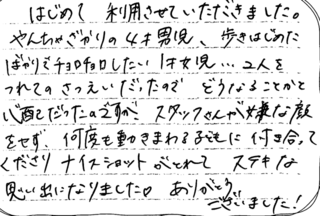 はじめて 利用させていただきました。
やんちゃざかりの4才男児、歩きはじめた
ばかりでチョロチョロしたい1才女児…2人を
つれてのさつえいだったので どうなることかと
心配だったのですが、スタッフさんが嫌な顔
をせず、何度も動きまわる子どもに付き合って
くださり ナイスショットがとれて ステキな
思い出になりました。ありがとう
ございました!